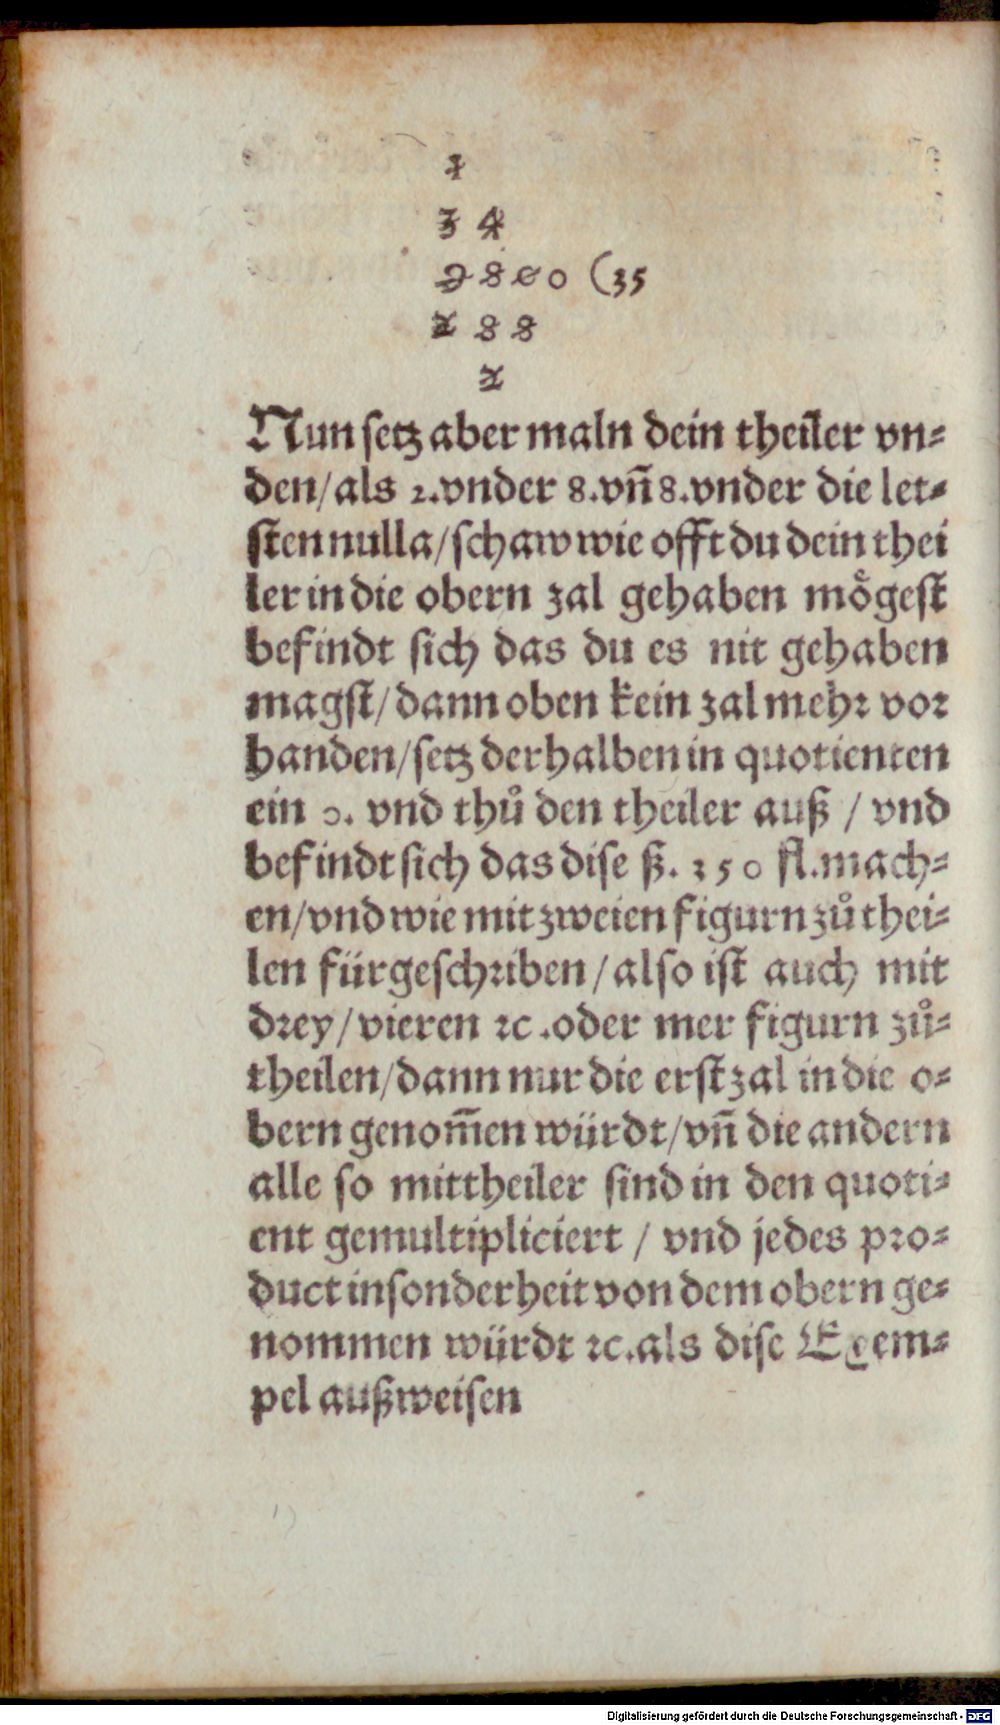 1
3 4
9 8 0 0 (35
2 8 8
2
Nun setz aber maln dein theiler vn⸗
den/als 2.vnder 8.vñ 8.vnder die let⸗
sten nulla/schaw wie offt du dein thei
ler in die obern zal gehaben mo᷑gest
befindt sich das du es nit gehaben
magst/dann oben kein zal mehr vor
handen/setz derhalben in quotienten
ein 0. vnd thů den theiler auß / vnd
befindt sich das dise ß. 350 fl.mach⸗
en/vnd wie mit zweien figurn zů thei⸗
len fürgeschriben/also ist auch mit
drey/vieren ꝛc.oder mer figurn zů⸗
theilen/dann nur die erst zal in die o⸗
bern genom̃en würdt/vñ die andern
alle so mittheiler sind in den quoti⸗
ent gemultipliciert / vnd jedes pro⸗
duct insonderheit von dem obern ge⸗
nommen würdt ꝛc.als dise Exem⸗
pel außweisen
Digitalisierung gefördert durch die Deutsche Forschungsgemeinschaft - DFG